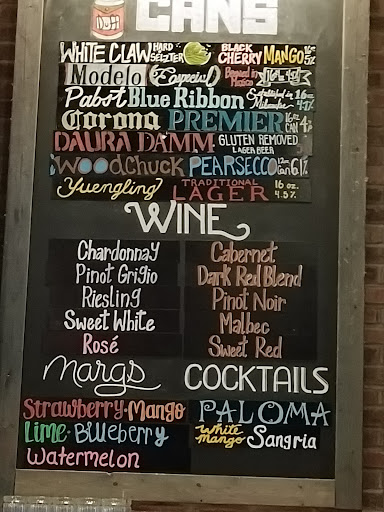 Duff
CANS
WHITE CLAW HARD SELTZER BLACK CHERRY MANGO 16oz 5%
Modelo Especial Brewed in Mexico 16oz 4.4%
Pabst Blue Ribbon Established in Milwaukee 16oz 4.7%
Corona PREMIER 16oz CAN 4%
DAURA DAMM GLUTEN REMOVED LAGER BEER
WOODCHUCK PEARSECCO 12oz can 6.1%
Yuengling TRADITIONAL LAGER 16 oz. 4.5%
WINE
Chardonnay Cabernet
Pinot Grigio Dark Red Blend
Riesling Pinot Noir
Sweet White Malbec
Rosé Sweet Red
Margs COCKTAILS
Strawberry-Mango PALOMA
Lime-Blueberry White Mango Sangria
Watermelon